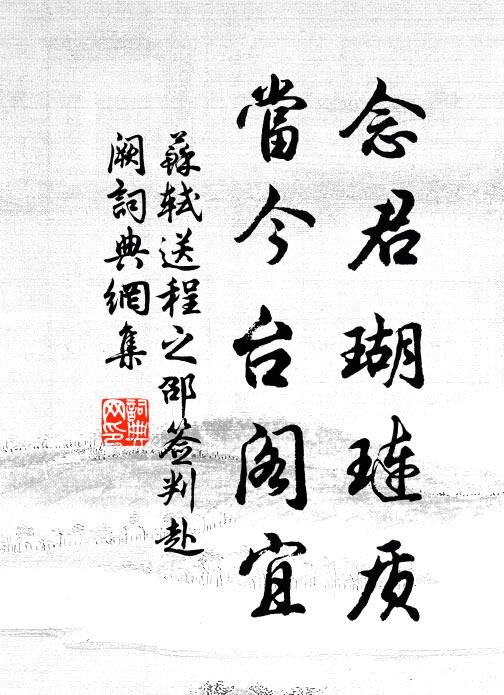 念君瑚璉质
當今台阁宜
蘇轼送程之邵簽判赴
阙詞典網集
詞典网印